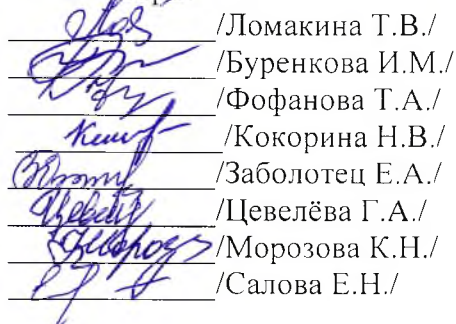 /Ломакина Т.В./
/Буренкова И.М./
/Фофанова Т.А./
/Кокорина Н.В./
/Заболотец Е.А./
/Цевелёва Г.А./
/Морозова К.Н./
/Салова Е.Н./